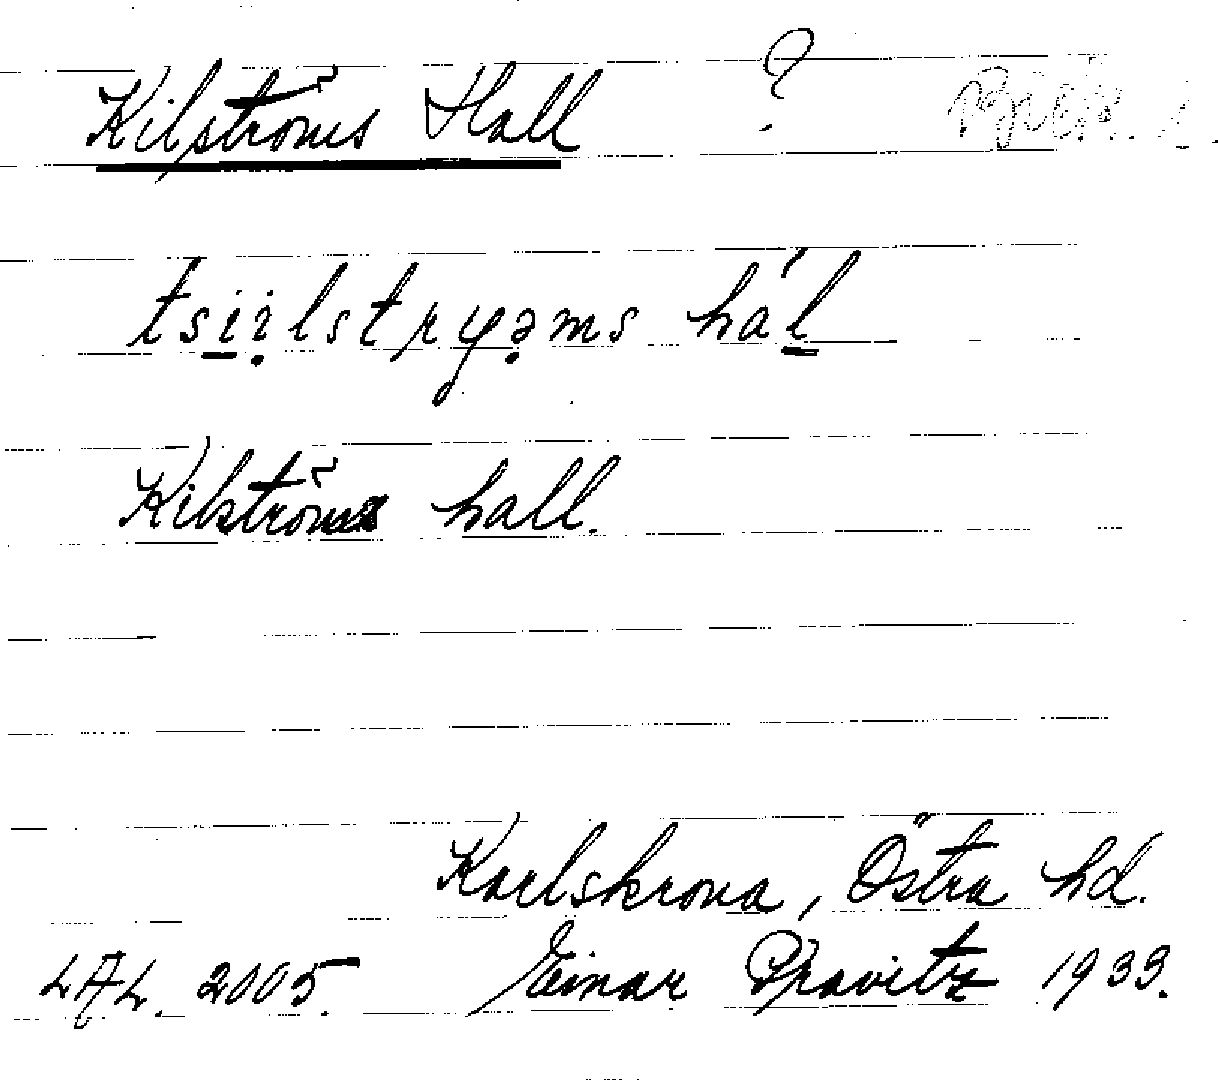 Kilströms Hall ?
tsi̱ịlstryə̣ms hál̲
Kilströms hall.
Karlskrona, Östra hd.
LAL. 2005. Einar Pravitz 1933.